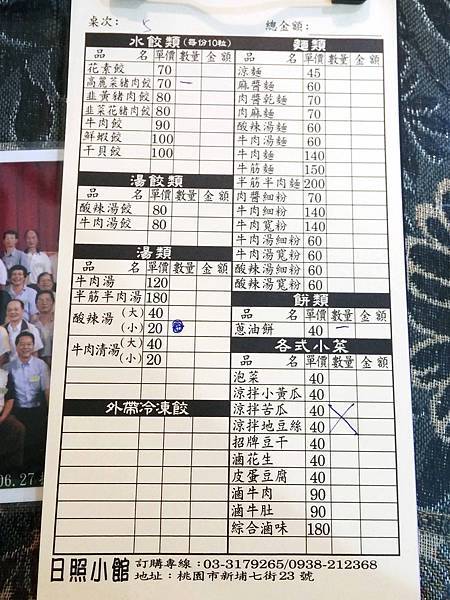 桌次： 5 總金額：
水餃類（每份10粒）
品 名 單價 數量 金額
花素餃 70
高麗菜豬肉餃 70 一
韭黃豬肉餃 80
韭菜花豬肉餃 80
牛肉餃 90
鮮蝦餃 100
干貝餃 100
湯餃類
品 名 單價 數量 金額
酸辣湯餃 80
牛肉湯餃 80
湯類
品 名 單價 數量 金額
牛肉湯 120
半筋半肉湯 180
酸辣湯 (大) 40
(小) 20
牛肉清湯 (大) 40
(小) 20
外帶冷凍餃
麵類
品 名 單價 數量 金額
涼麵 45
麻醬麵 60
肉醬乾麵 70
肉麻麵 70
酸辣湯麵 60
牛肉湯麵 60
牛肉麵 140
牛筋麵 150
半筋半肉麵 200
肉醬細粉 70
牛肉細粉 140
牛肉寬粉 140
牛肉湯細粉 60
牛肉湯寬粉 60
酸辣湯細粉 60
酸辣湯寬粉 60
餅類
品 名 單價 數量 金額
蔥油餅 40 一
各式小菜
品 名 單價 數量 金額
泡菜 40
涼拌小黃瓜 40
涼拌苦瓜 40
涼拌地豆絲 40
招牌豆干 40
滷花生 40
皮蛋豆腐 40
滷牛肉 90
滷牛肚 90
綜合滷味 180
日照小館 訂購專線：03-3179265/0938-212368
地址：桃園市新埔七街23號
06.27